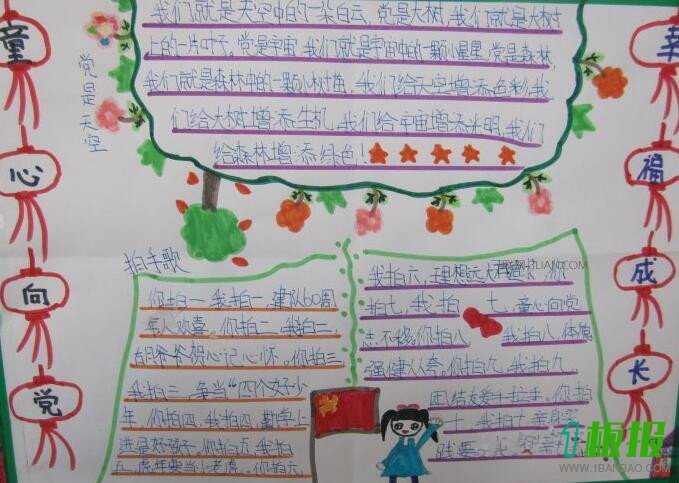 童
心
向
党
幸
福
成
长
党是天空
我们就是天空中的一朵白云,党是大树,我们就是大树
上的一片叶子。党是宇宙,我们就是宇宙中的一颗小星星,党是森林,
我们就是森林中的一颗小树苗,我们给天空增添色彩,我
们给大树增添生机,我们给宇宙增添光明,我们
给森林增添绿色!
拍手歌
你拍一,我拍一,建队60周
年人欢喜。你拍二,我拍二,
胡爷爷贺心记心怀。你拍三
我拍三,争当“四个好少
年,你拍四,我拍四,勤学上
进是好孩子。你拍五,我拍
五,虎年要当小老虎。你拍六,
我拍六,理想远大
拍七,我拍七,童心向党
志不移,你拍八,我拍八,体魄
强健人人夸。你拍九,我拍九,
团结友爱手拉手。你拍
十,我拍十,
1板报
WWW.1BANBAO.COM